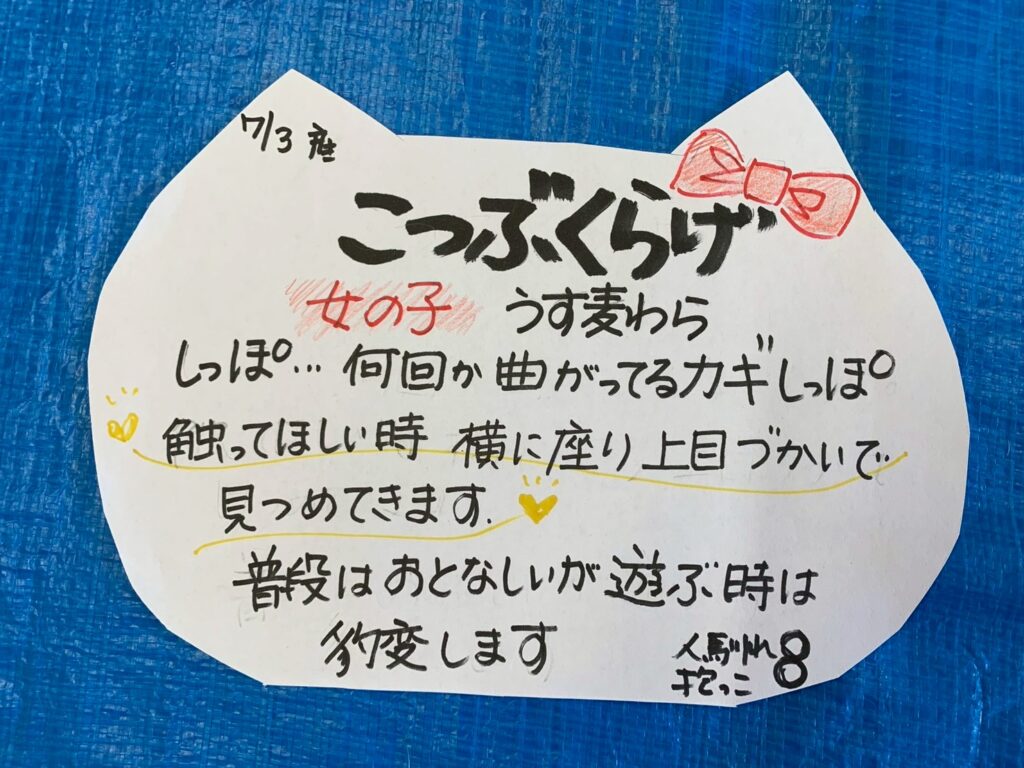 7/3 産
こつぶくらげ
女の子 うす麦わら
しっぽ… 何回か曲がってるカギしっぽ
触ってほしい時 横に座り上目づかいで
見つめてきます.
普段はおとなしいが遊ぶ時は
豹変します
人馴れ 8
抱っこ